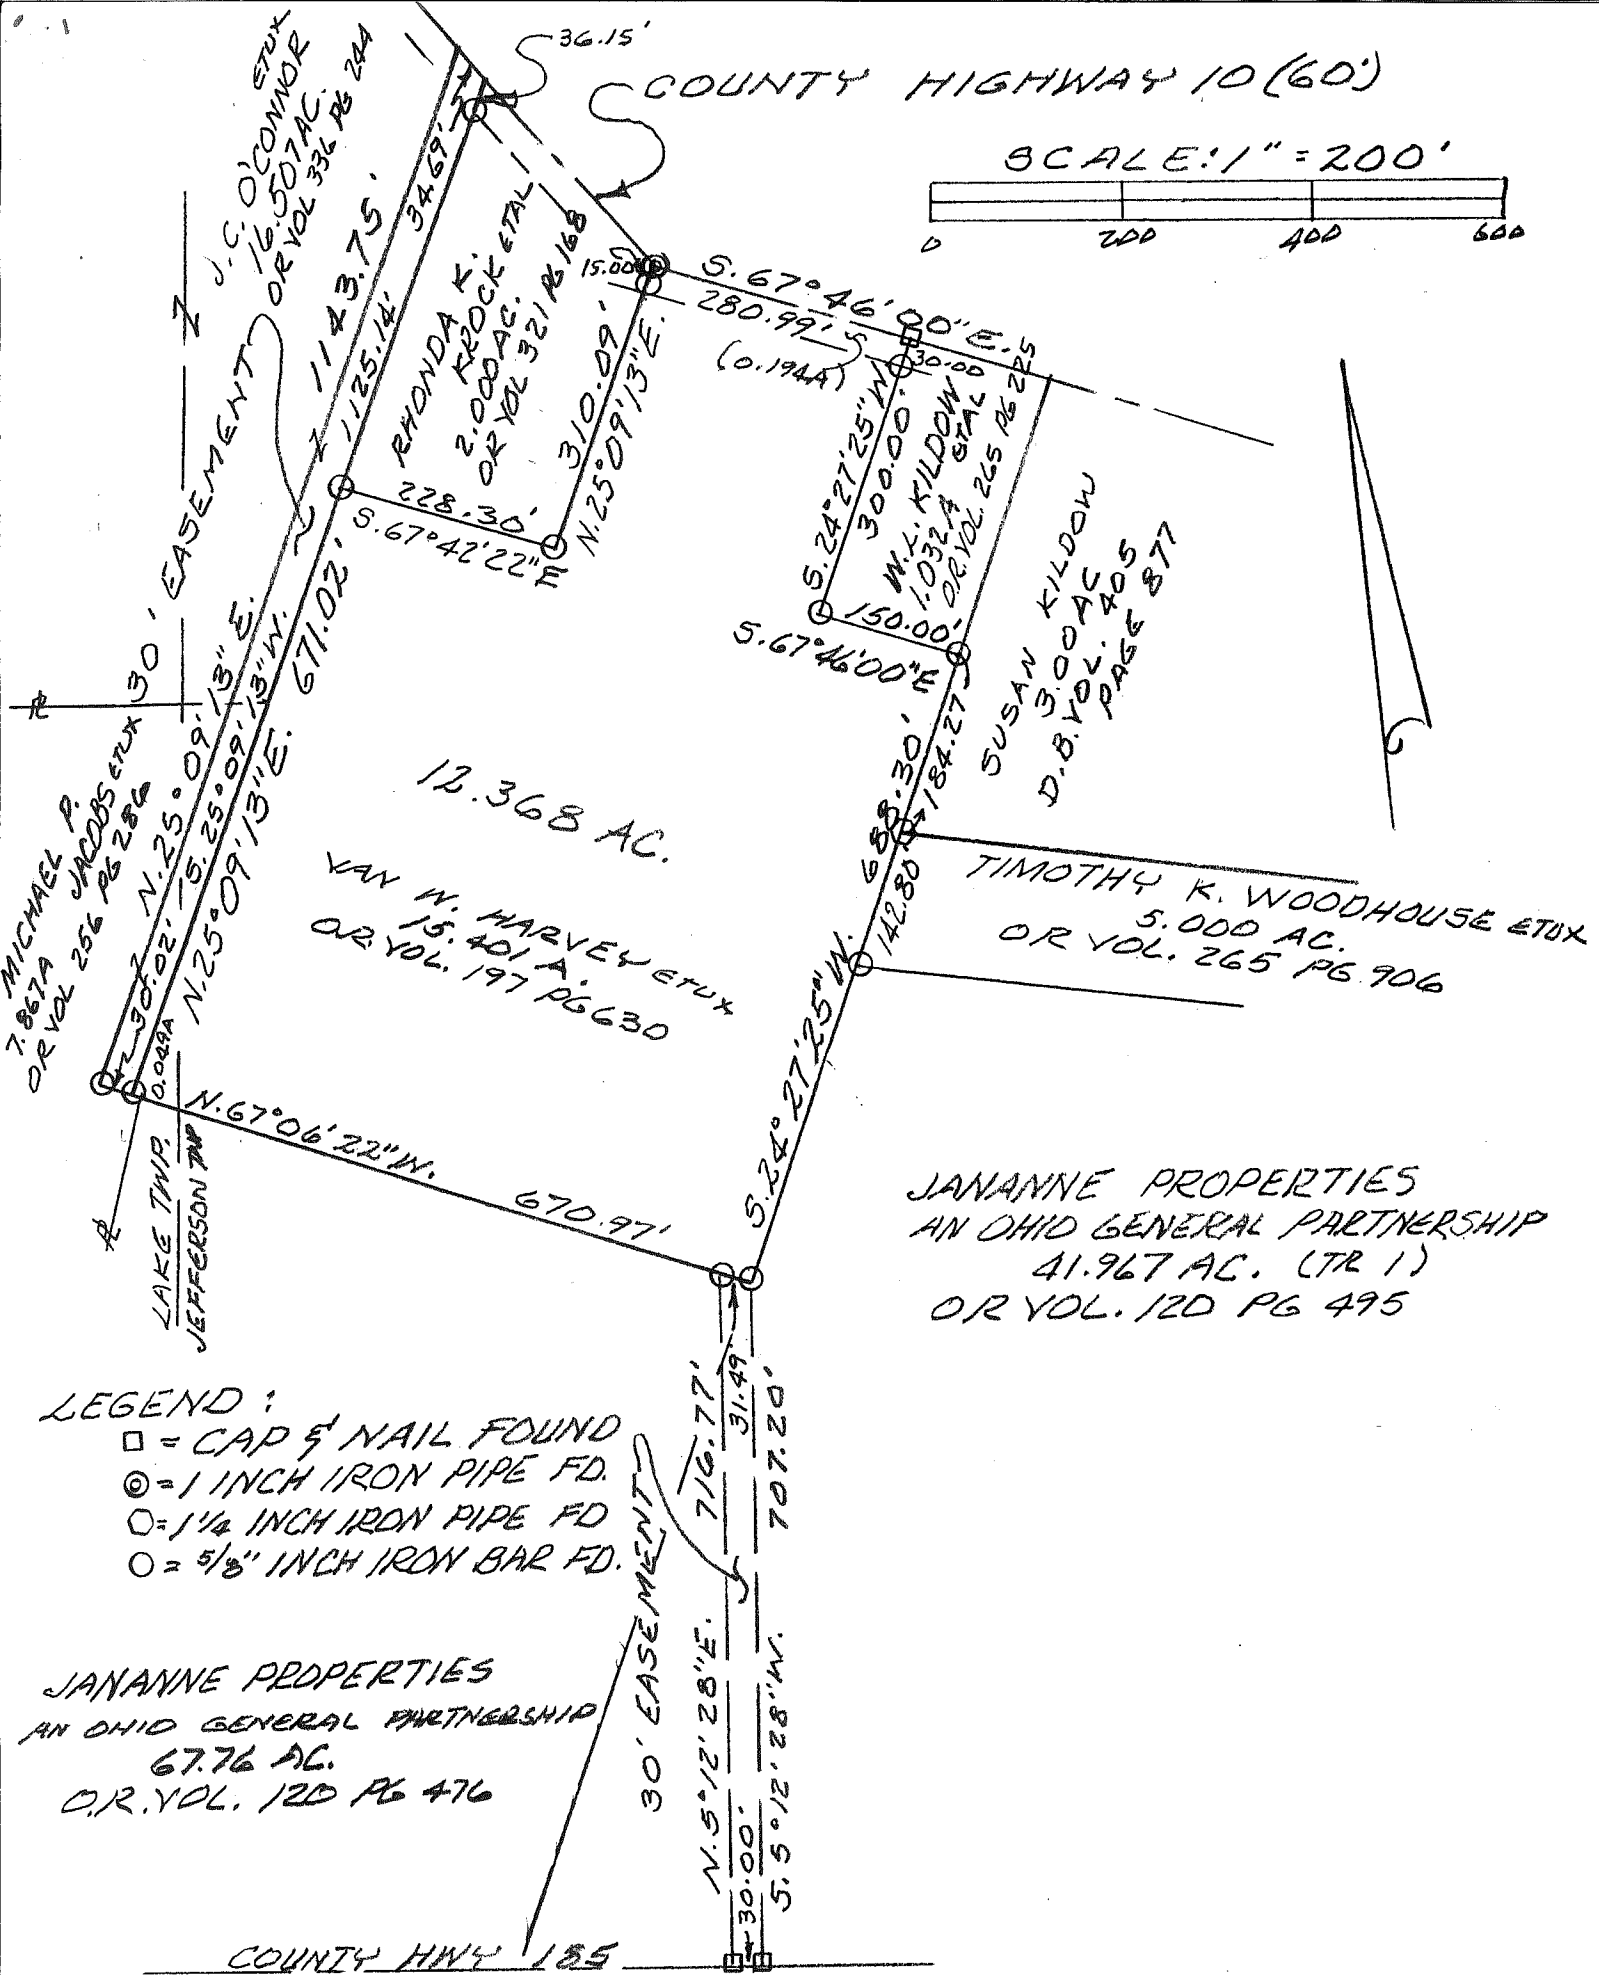 36.15'
COUNTY HIGHWAY 10 (60')
SCALE: 1" = 200'
0 200 400 600
J.C. O'CONNOR ETUX
16.507 AC.
OR VOL 336 PG 244
1143.75'
34.69'
1125.14'
RHONDA K.
KROCK ETAL
2.000 AC.
OR VOL 321 PG 168
15.00
S.67°46'00"E.
280.99'
(0.194A)
30.00
310.09'
N.25°09'13"E.
228.30'
S.67°42'22"E
S.24°27'25"W
300.00'
W.L. KILDOW
ETAL
1.032 A
O.R. VOL. 265 PG 225
150.00'
S.67°46'00"E
SUSAN KILDOW
3.00 AC
D.B. VOL. 405
PAGE 877
30' EASEMENT
671.02'
N.25°09'13"E.
S.25°09'13"W.
N.25°09'13"E.
30.02'
0.049A
MICHAEL P.
JACOBS ETUX
7.867A
OR VOL 256 PG 286
12.368 AC.
VAN W. HARVEY ETUX
15.401 A.
OR. VOL. 197 PG 630
688.30'
184.27
142.80
S.24°27'25"W.
TIMOTHY K. WOODHOUSE ETUX
5.000 AC.
OR VOL. 265 PG. 906
N.67°06'22"W.
670.97'
LAKE TWP.
JEFFERSON TWP
JANANNE PROPERTIES
AN OHIO GENERAL PARTNERSHIP
41.967 AC. (TR 1)
OR VOL. 120 PG 495
LEGEND:
□ = CAP & NAIL FOUND
◎ = 1 INCH IRON PIPE FD.
⬡ = 1 1/4 INCH IRON PIPE FD
○ = 5/8" INCH IRON BAR FD.
716.77'
31.49
707.20'
30' EASEMENT
N.5°12'28"E.
S.5°12'28"W.
30.00'
JANANNE PROPERTIES
AN OHIO GENERAL PARTNERSHIP
67.76 AC.
O.R. VOL. 120 PG 476
COUNTY HWY 185